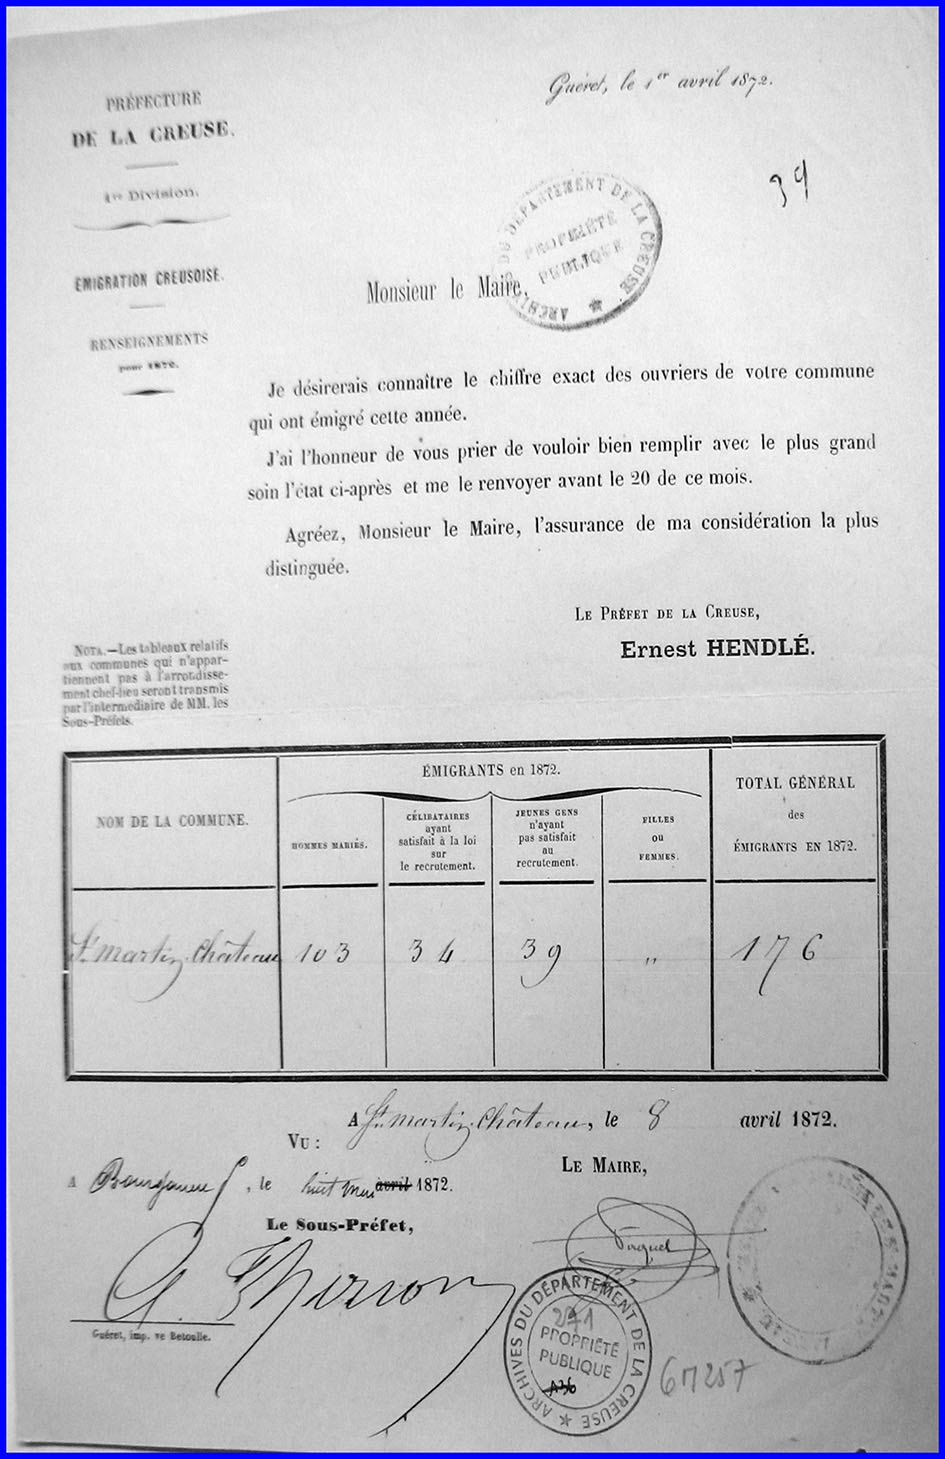 Guéret, le 1er avril 1872.
PRÉFECTURE
DE LA CREUSE.
1re Division.
ÉMIGRATION CREUSOISE.
RENSEIGNEMENTS
pour 1872.
39
ARCHIVES DU DÉPARTEMENT DE LA CREUSE
PROPRIÉTÉ
PUBLIQUE
Monsieur le Maire,
Je désirerais connaître le chiffre exact des ouvriers de votre commune
qui ont émigré cette année.
J'ai l'honneur de vous prier de vouloir bien remplir avec le plus grand
soin l'état ci-après et me le renvoyer avant le 20 de ce mois.
Agréez, Monsieur le Maire, l'assurance de ma considération la plus
distinguée.
LE PRÉFET DE LA CREUSE,
Ernest HENDLÉ.
NOTA.—Les tableaux relatifs
aux communes qui n'appar-
tiennent pas à l'arrondisse-
ment chef-lieu seront transmis
par l'intermédiaire de MM. les
Sous-Préfets.
NOM DE LA COMMUNE.
ÉMIGRANTS en 1872.
HOMMES MARIÉS.
CÉLIBATAIRES
ayant
satisfait à la loi
sur
le recrutement.
JEUNES GENS
n'ayant
pas satisfait
au
recrutement.
FILLES
ou
FEMMES.
TOTAL GÉNÉRAL
des
ÉMIGRANTS EN 1872.
St martin Château 103 34 39 " 176
A St martin Château, le 8 avril 1872.
VU :
LE MAIRE,
A Bourganeuf, le huit mai avril 1872.
Le Sous-Préfet,
A. Thirion
Guéret, imp. ve Betoulle.
ARCHIVES DU DÉPARTEMENT DE LA CREUSE
271
PROPRIÉTÉ
PUBLIQUE
6M257